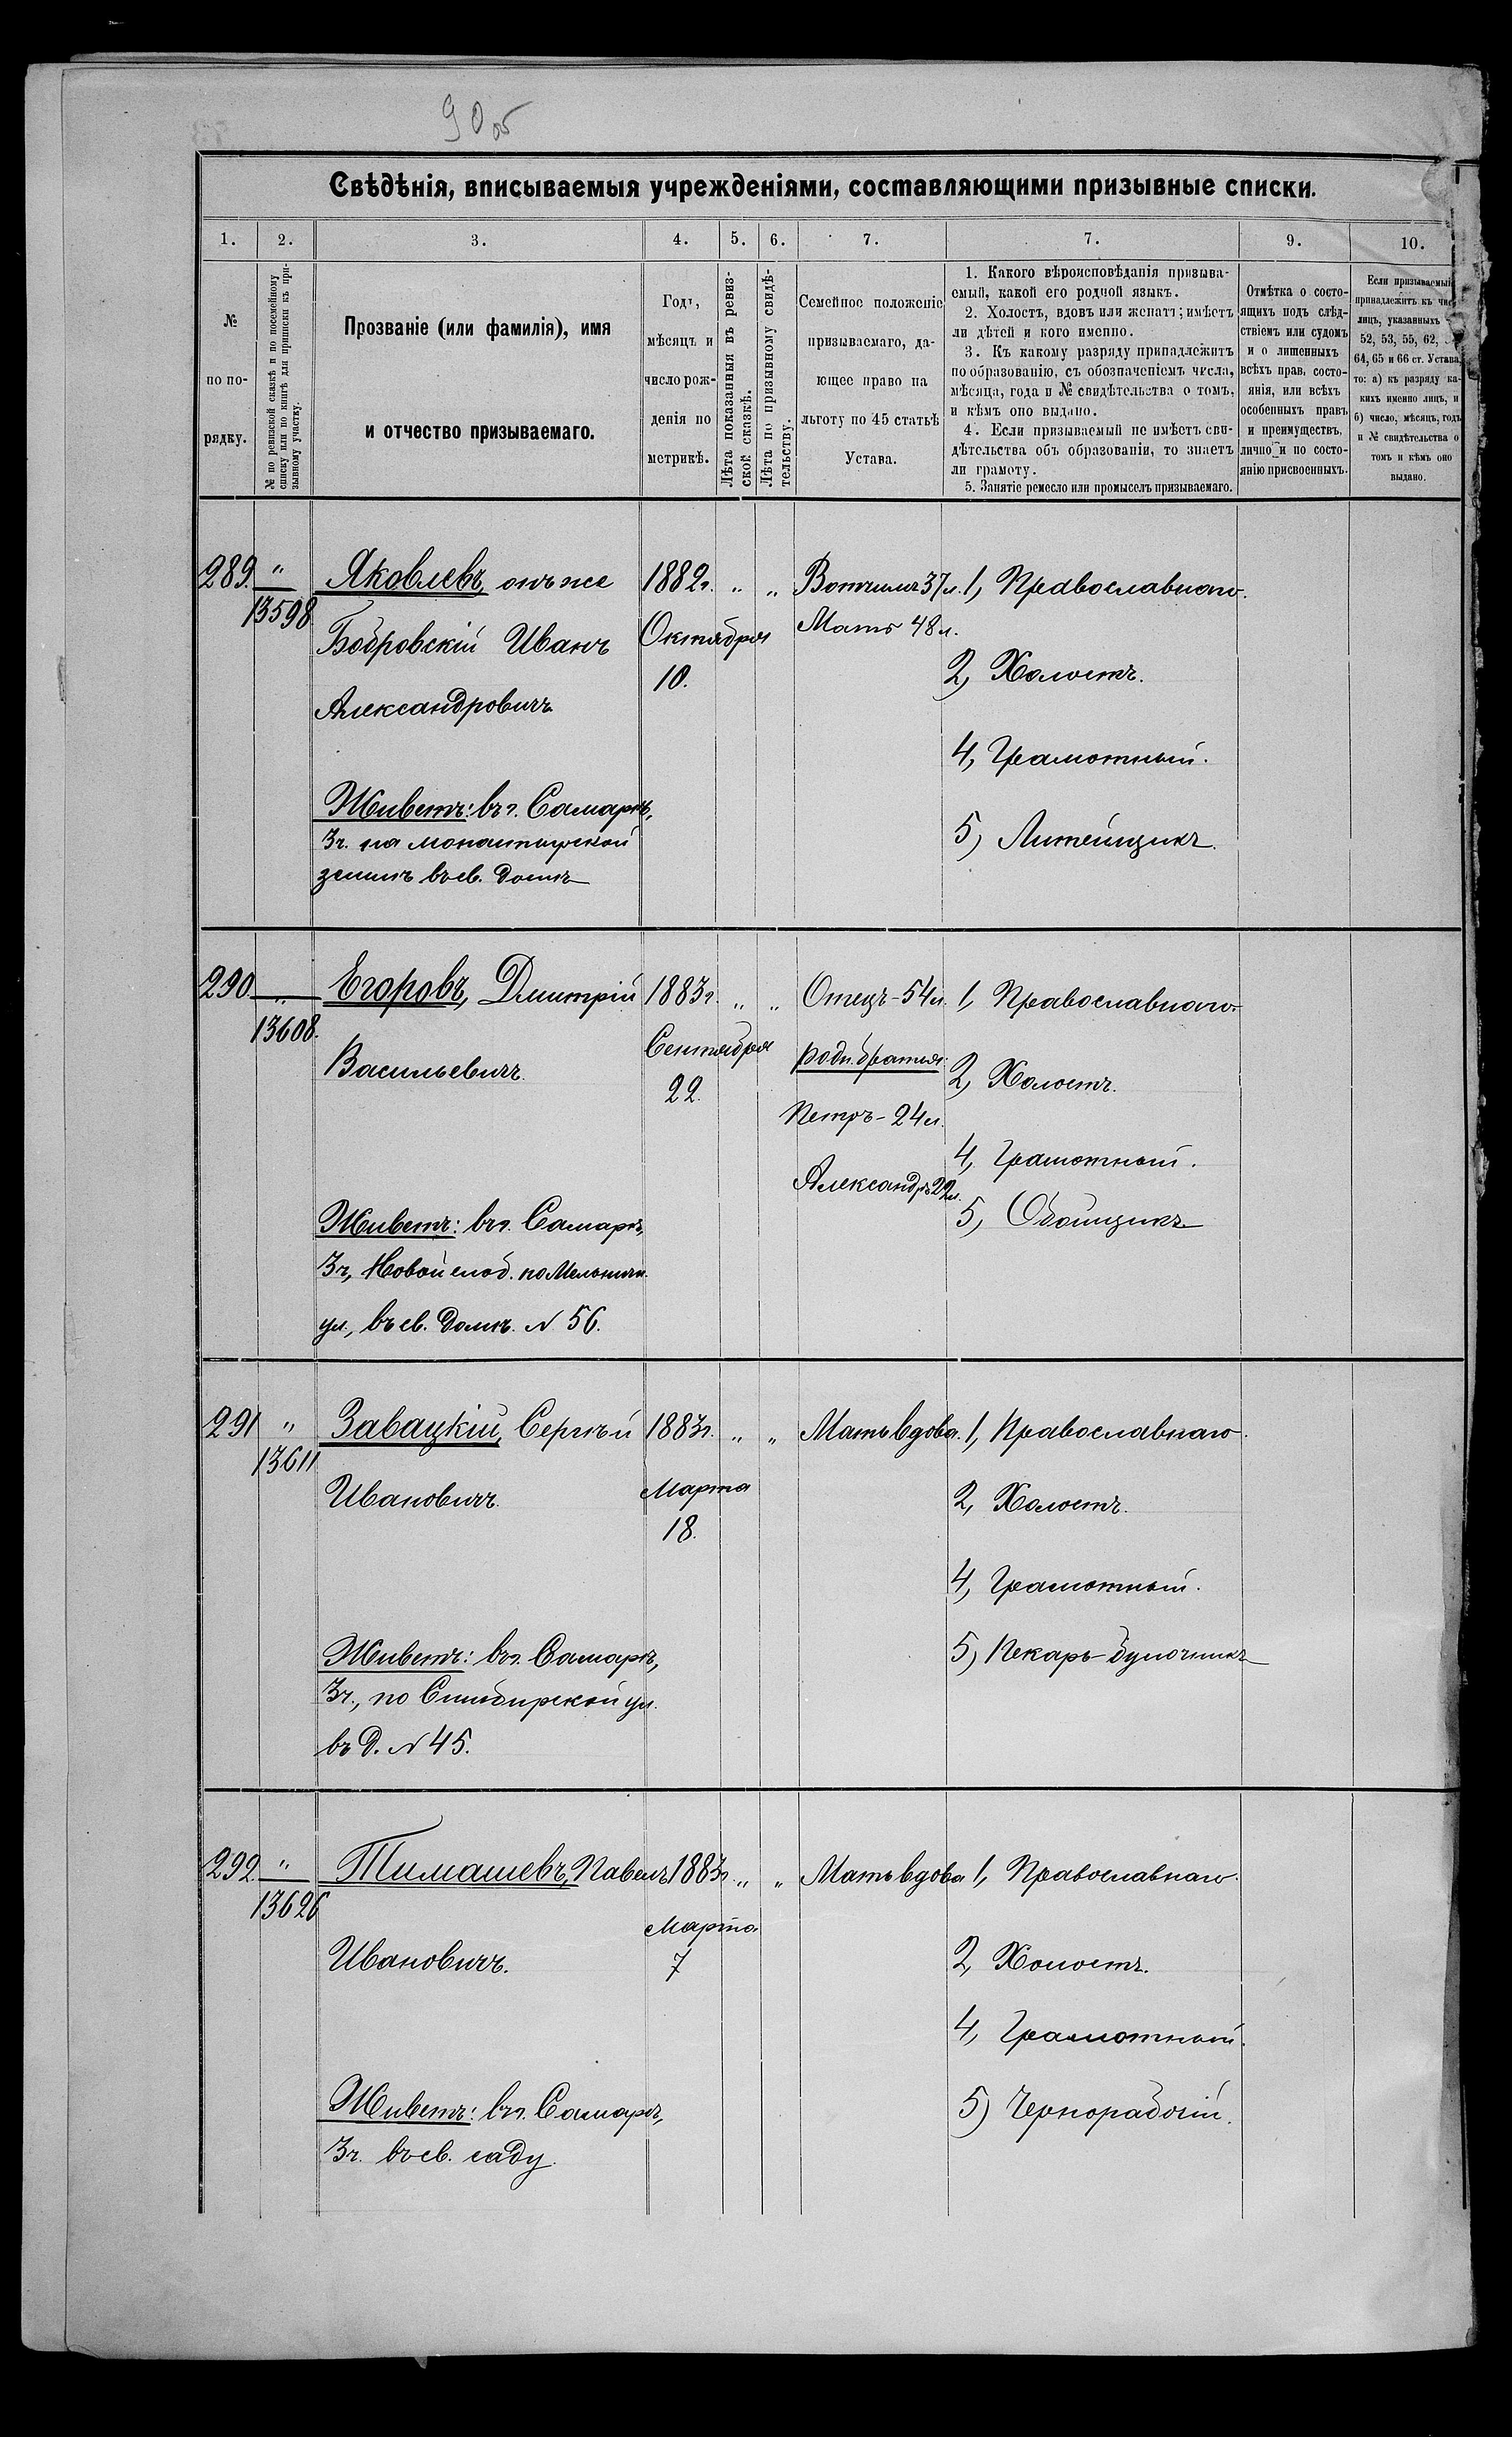 90 об
Свѣдѣнія, вписываемыя учрежденіями, составляющими призывные списки.
1. 2. 3. 4. 5. 6. 7. 7. 9. 10.
№
по по-
рядку.
№ по ревизской сказкѣ и по посемейному
списку или по книгѣ для приписки къ при-
зывному участку.
Прозваніе (или фамилія), имя
и отчество призываемаго.
Годъ,
мѣсяцъ и
число рож-
денія по
метрикѣ.
Лѣта показанныя въ ревиз-
ской сказкѣ.
Лѣта по призывному свидѣ-
тельству.
Семейное положеніе
призываемаго, да-
ющее право на
льготу по 45 статьѣ
Устава.
1. Какого вѣроисповѣданія призыва-
емый, какой его родной языкъ.
2. Холостъ, вдовъ или женатъ; имѣетъ
ли дѣтей и кого именно.
3. Къ какому разряду принадлежитъ
по образованію, съ обозначеніемъ числа,
мѣсяца, года и № свидѣтельства о томъ,
и кѣмъ оно выдано.
4. Если призываемый не имѣетъ сви-
дѣтельства объ образованіи, то знаетъ
ли грамоту.
5. Занятіе ремесло или промыселъ призываемаго.
Отмѣтка о состо-
ящихъ подъ слѣд-
ствіемъ или судомъ
и о лишенныхъ
всѣхъ прав, состо-
янія, или всѣхъ
особенныхъ правъ
и преимуществъ,
лично и по состо-
янію присвоенныхъ.
Если призываемый
принадлежитъ къ
лицъ, указанныхъ
52, 53, 55, 62,
64, 65 и 66 ст. Устава,
то: а) къ разряду ка-
кихъ именно лицъ, и
б) число, мѣсяцъ, годъ
и № свидѣтельства о
томъ и кѣмъ оно
выдано.
289. "
13598
Яковлевъ, онъ же
Бобровскій Иванъ
Александровичъ
Живетъ: въ г. Самарѣ,
3 ч. на монастырской
землѣ въ св. домѣ
1882 г.
Октября
10.
" "
Вотчимъ 37 л.
Мать 48 л.
1, Православнаго.
2, Холостъ.
4, Грамотный.
5) Литейщикъ.
290. "
13608.
Егоровъ, Дмитрій
Васильевичъ.
Живетъ: въ г. Самарѣ,
3 ч., Новой слоб. по Мельничн.
ул., въ св. домѣ. N 56.
1883 г.
Сентября
22.
" "
Отецъ - 54 л.
Родн. братья:
Петръ - 24 л.
Александръ 22 л.
1, Православнаго.
2, Холостъ.
4, Грамотный.
5, Обойщикъ
291 "
13611
Завацкій, Сергѣй
Ивановичъ.
Живетъ: въ г. Самарѣ,
3 ч., по Симбирской ул.
въ д. N 45.
1883 г.
Марта
18.
" "
Мать вдова.
1, Православнаго.
2, Холостъ.
4, Грамотный.
5) Пекарь-булочникъ
292. "
13626
Тимашевъ, Павелъ
Ивановичъ.
Живетъ: въ г. Самарѣ,
3 ч. въ св. саду.
1883 г.
Марта
7
" "
Мать вдова
1, Православнаго.
2, Холостъ.
4, Грамотный.
5) Чернорабочій.